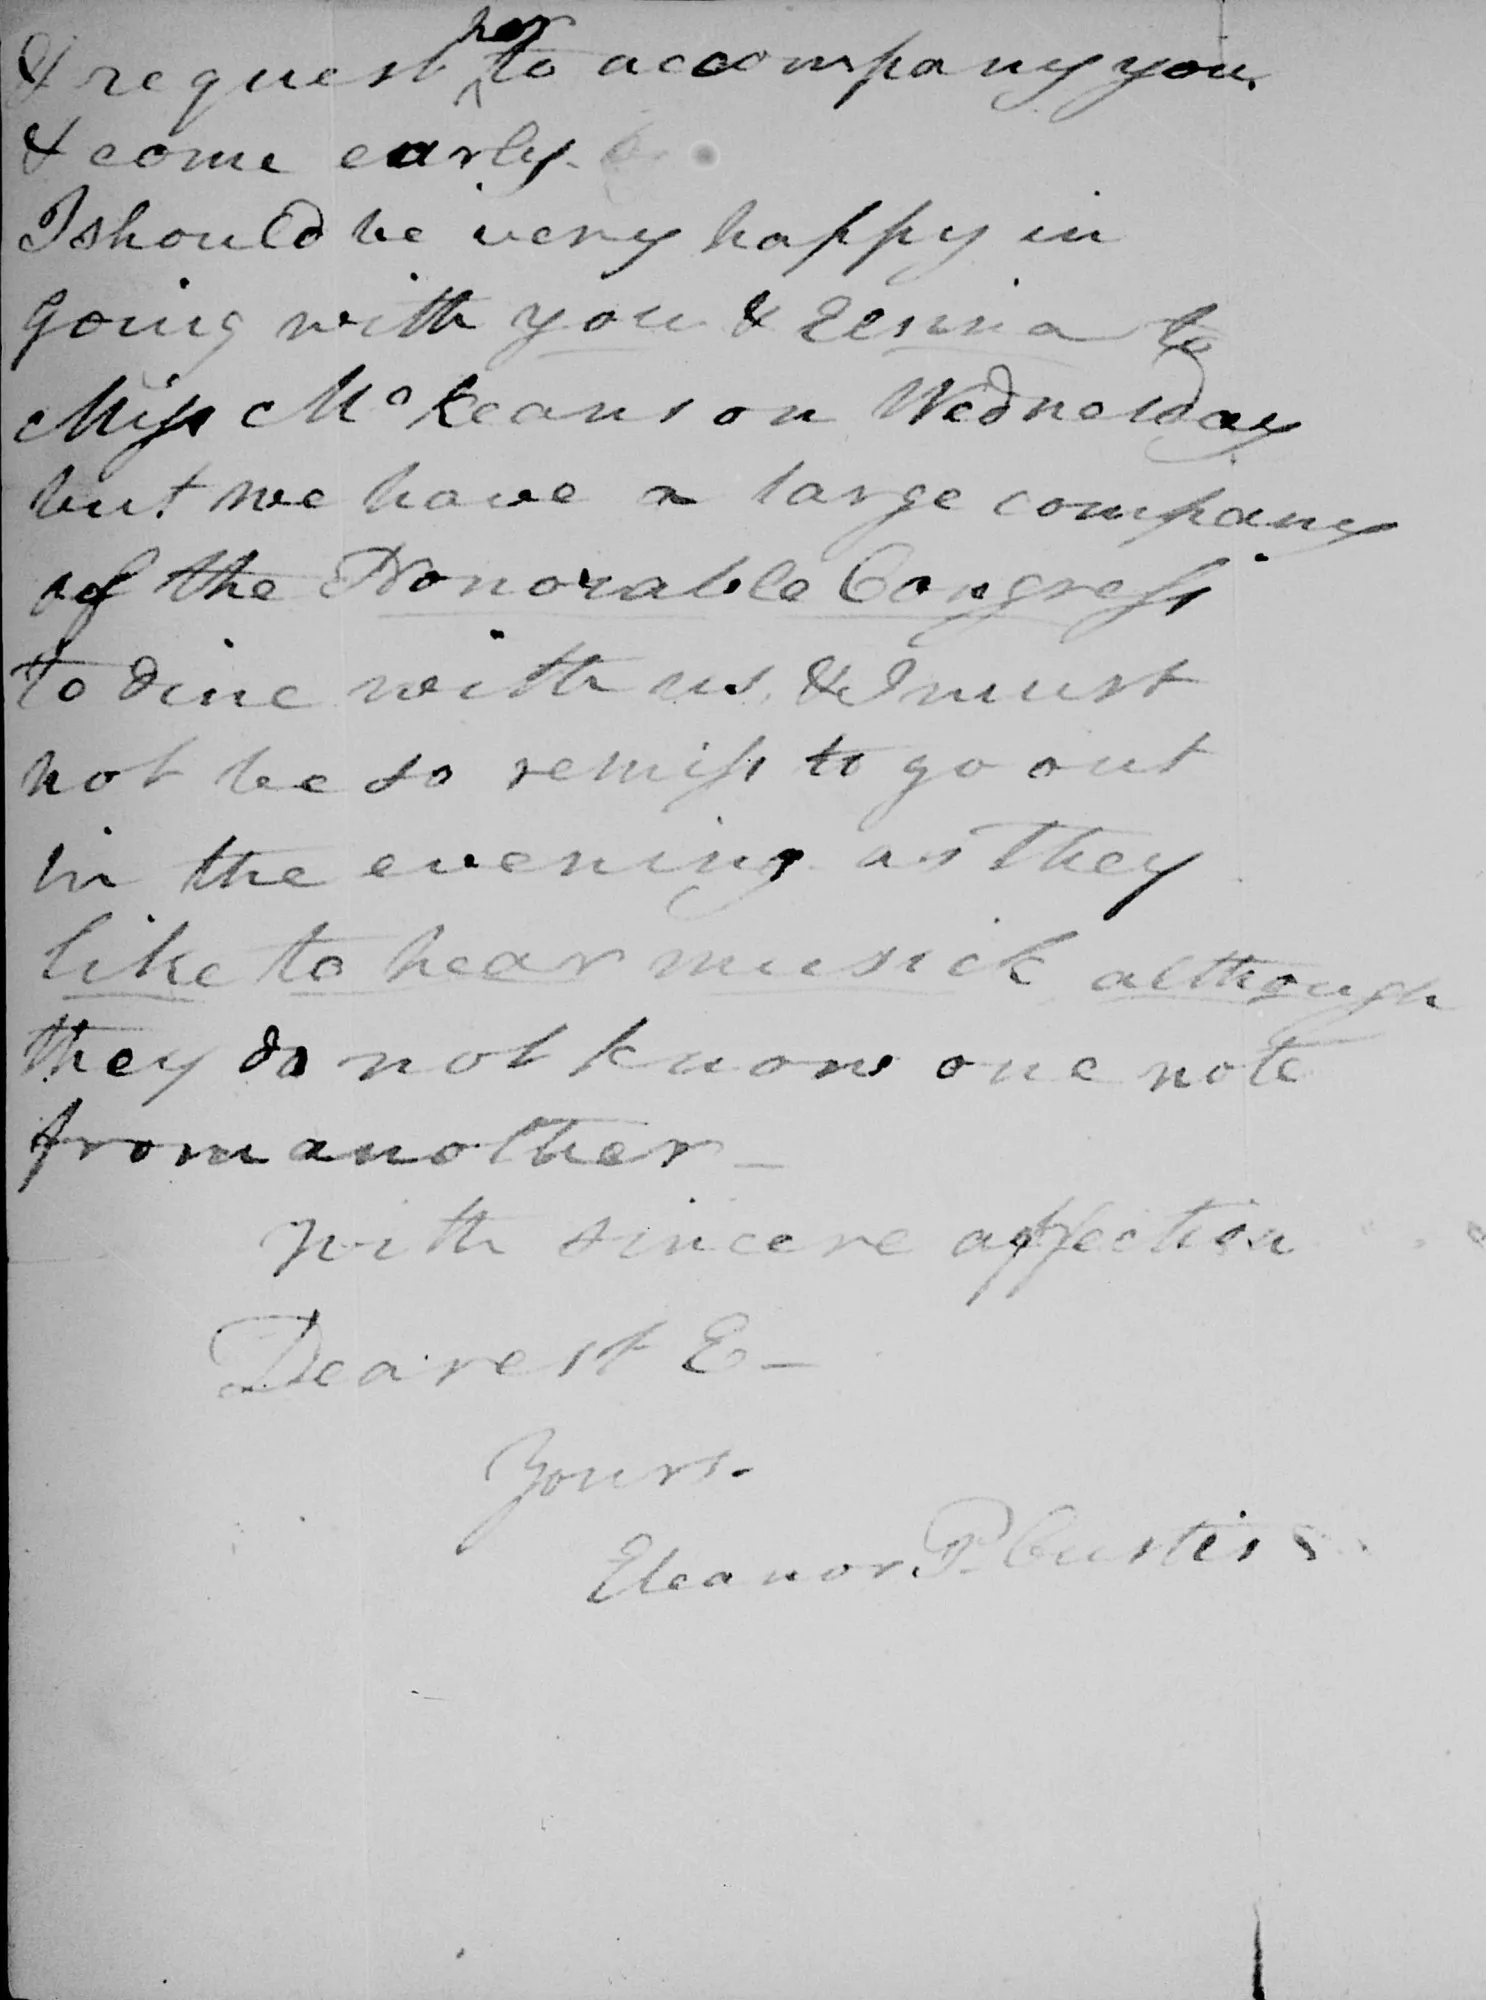 & request her to accompany you.
& come early.
I should be very happy in
going with you & Elsina to
Miss McKeans on Wednesday
but we have a large company
of the Honorable Congress
to dine with us, & I must
not be so remiss to go out
in the evening as they
like to hear musick although
they do not know one note
from another —
with sincere affection
Dearest E —
Yours.
Eleanor P. Custis